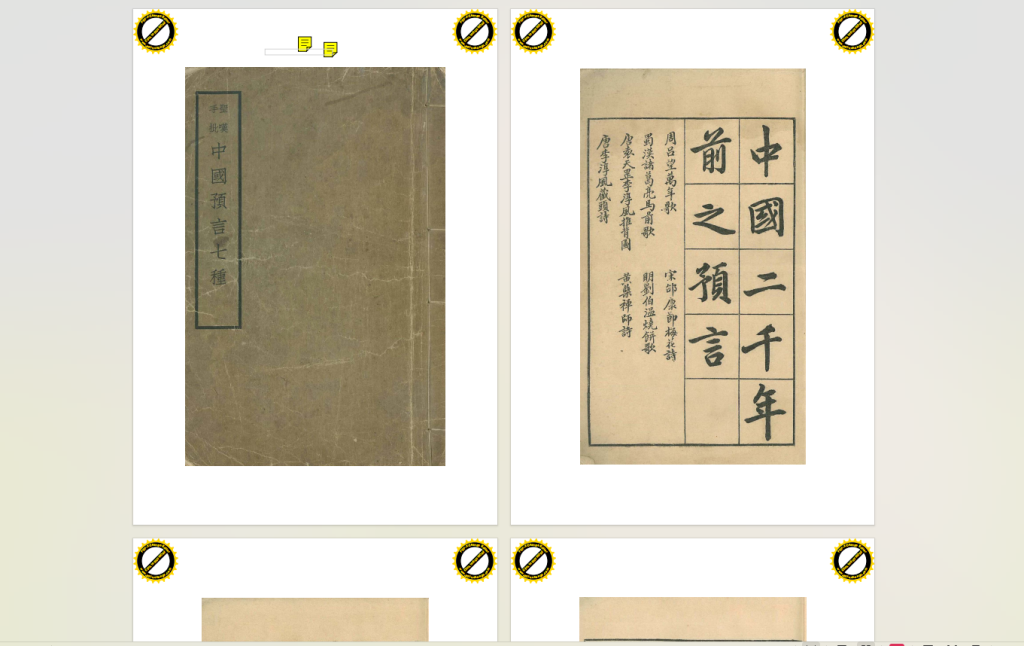 中國預言七種
中國二千年
前之預言
周呂望萬年歌
蜀漢諸葛亮馬前歌
唐袁天罡李淳風推背圖
唐李淳風藏頭詩
宋邵康節梅花詩
明劉伯溫燒餅歌
黃蘗禪師詩